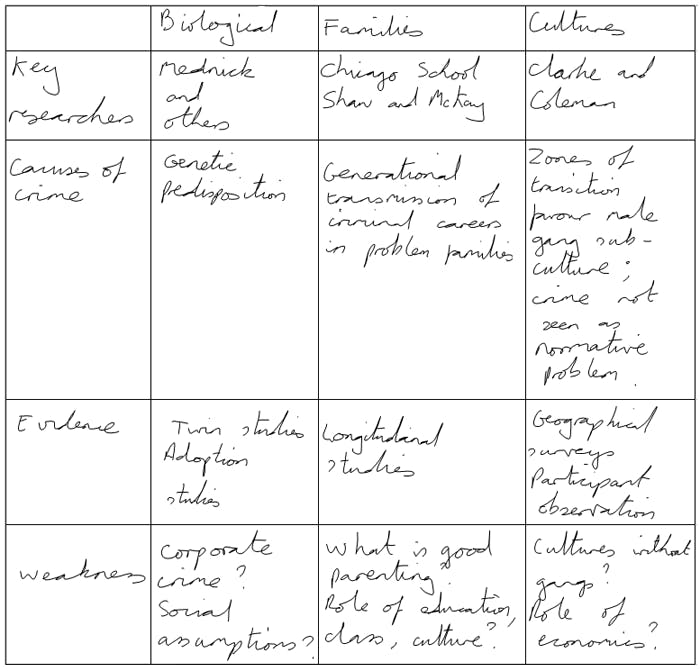 Biological Families Cultures
Key
researchers
Mednick
and
others
Chicago School
Shaw and McKay
Clarke and
Coleman
Causes of
crime
Genetic
predisposition
Generational
transmission of
criminal careers
in problem families
Zones of
transition
favour male
gang sub-
culture;
crime not
seen as
normative
problem.
Evidence
Twin studies
Adoption
studies
Longitudinal
studies
Geographical
surveys
Participant
observation
weakness
Corporate
crime?
Social
assumptions?
What is good
parenting?
Role of education,
class, culture?
Cultures without
gangs?
Role of
economics?